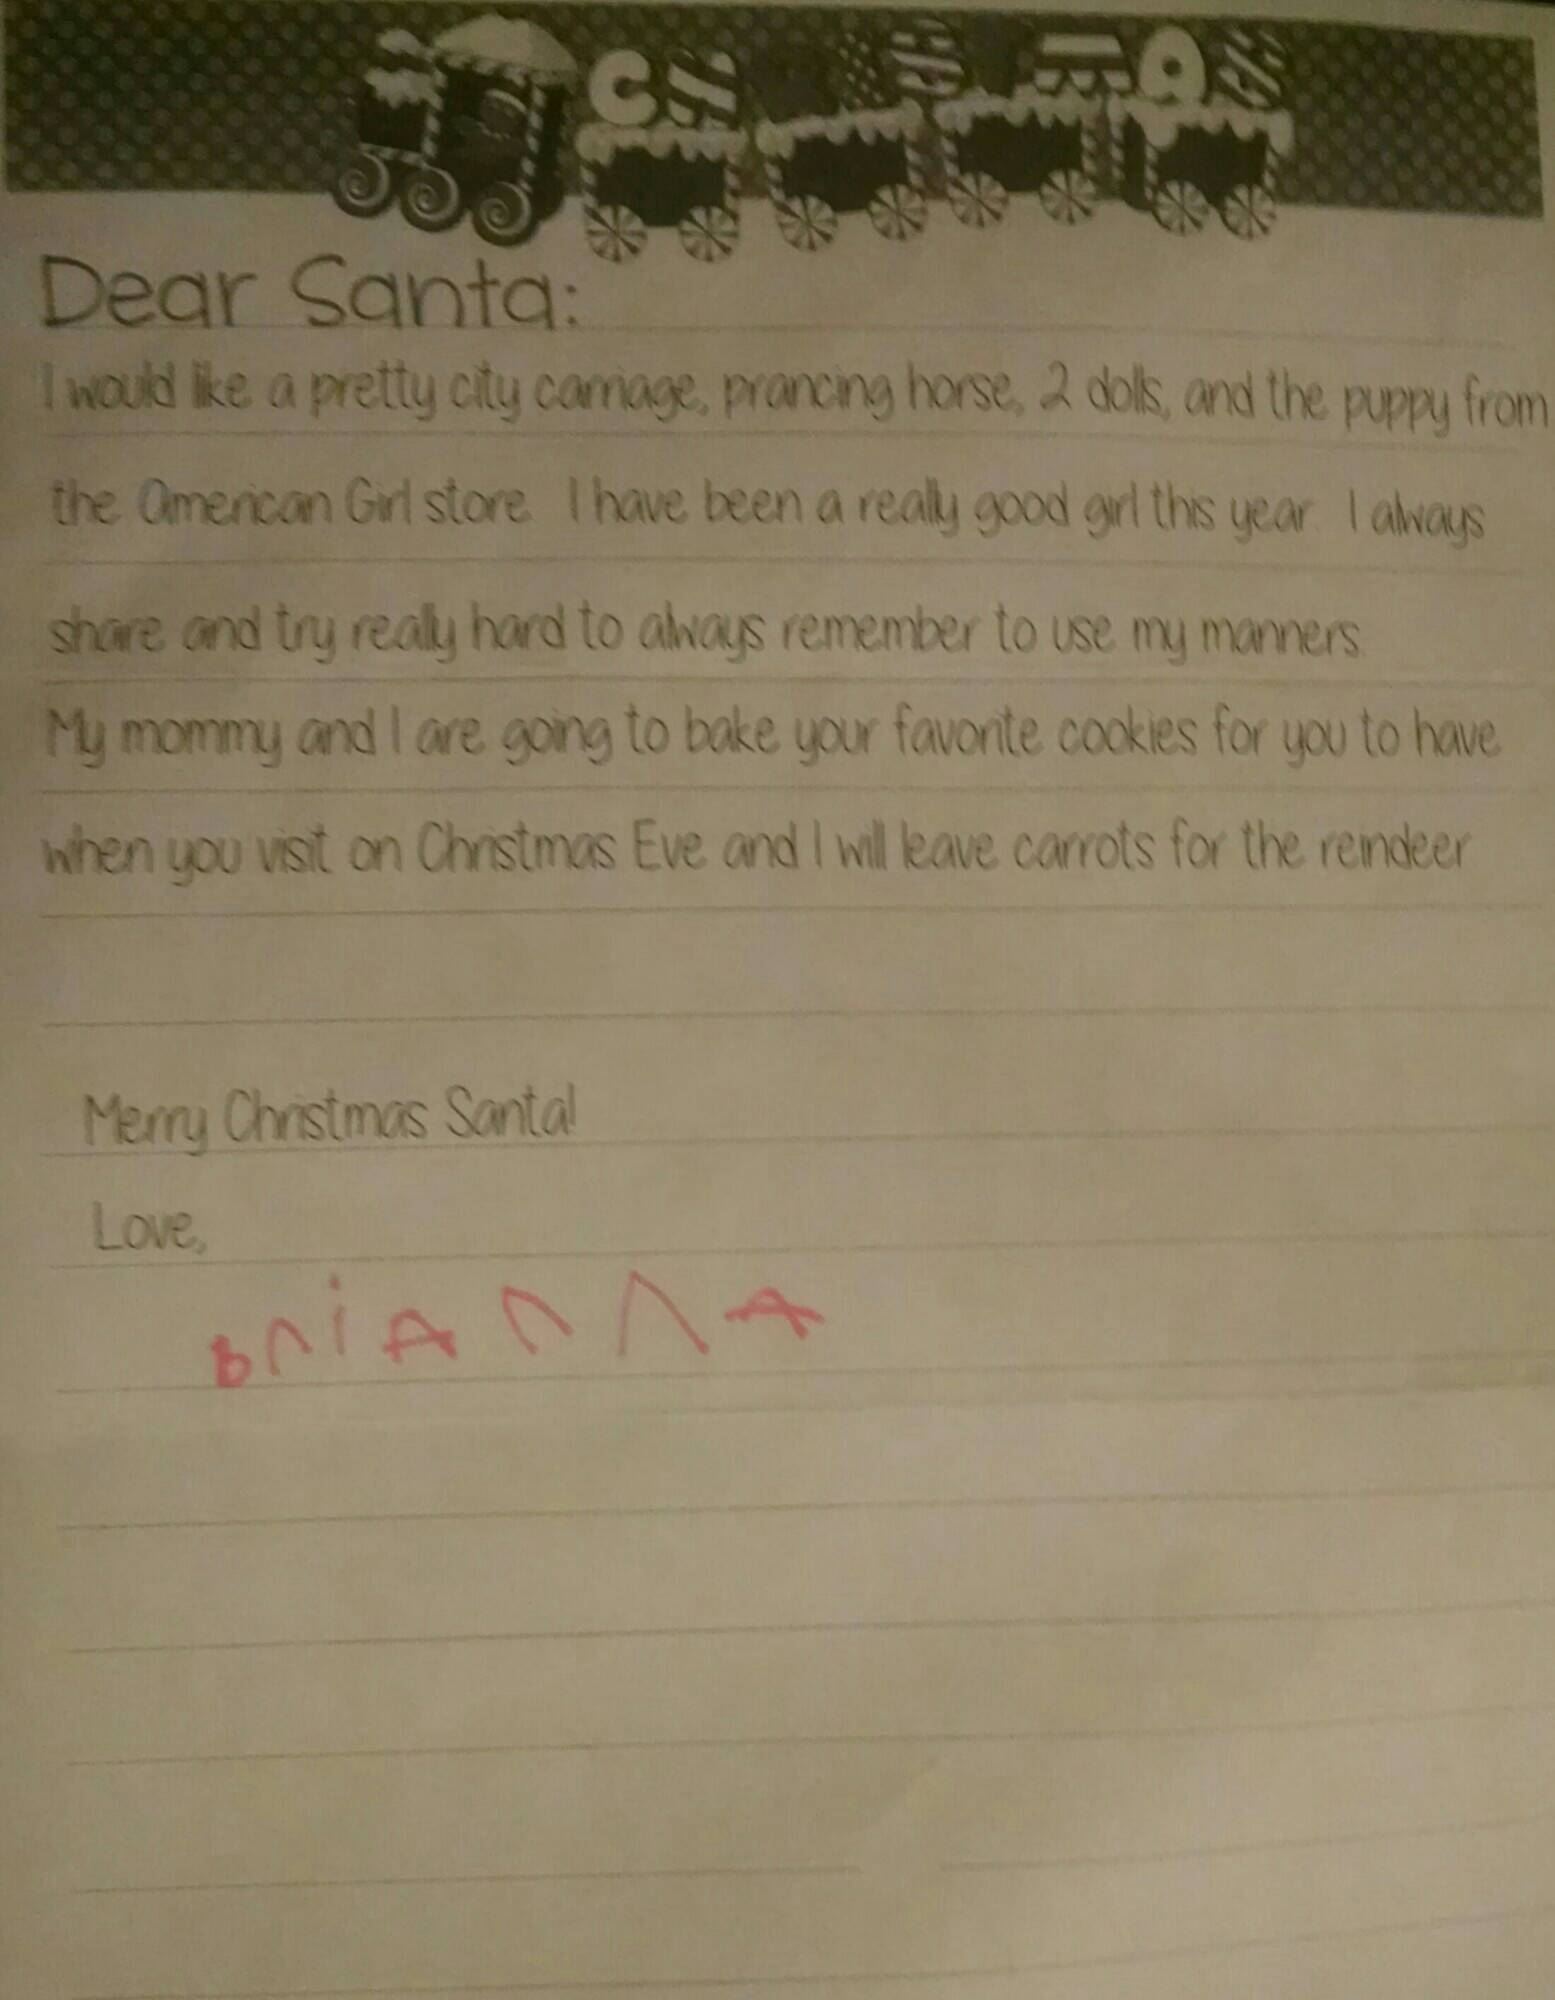 CH S mas
Dear Santa:
I would like a pretty city carriage, prancing horse, 2 dolls, and the puppy from
the American Girl store. I have been a really good girl this year. I always
share and try really hard to always remember to use my manners.
My mommy and I are going to bake your favorite cookies for you to have
when you visit on Christmas Eve and I will leave carrots for the reindeer
Merry Christmas Santa!
Love,
BriAnnA